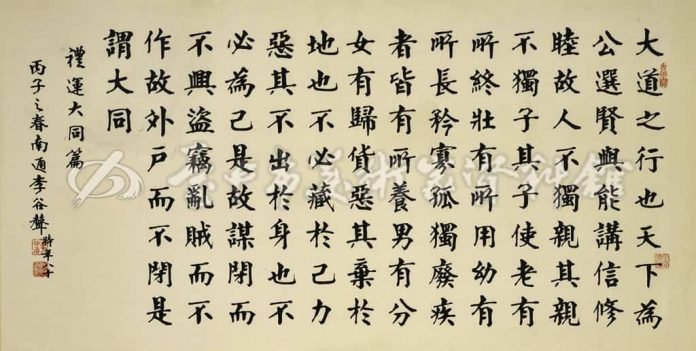 大道之行也天下為
公選賢與能講信修
睦故人不獨親其親
不獨子其子使老有
所終壯有所用幼有
所長矜寡孤獨廢疾
者皆有所養男有分
女有歸貨惡其棄於
地也不必藏於己力
惡其不出於身也不
必為己是故謀閉而
不興盜竊亂賊而不
作故外戶而不閉是
謂大同
禮運大同篇
丙子之春南通李谷聲時年八十